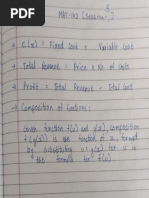 MAT-112 (Session:
→ C(x) = Fixed cost + Variable cost
→ Total Revenue = Price x No. of Units
→ Profit = Total Revenue - Total Cost
→ Composition of functions:
Given function f(u) and g(x), composition
f(g(x)) is the function of x, formed
by substituting u = g(x) for u in
the formula for f(u)